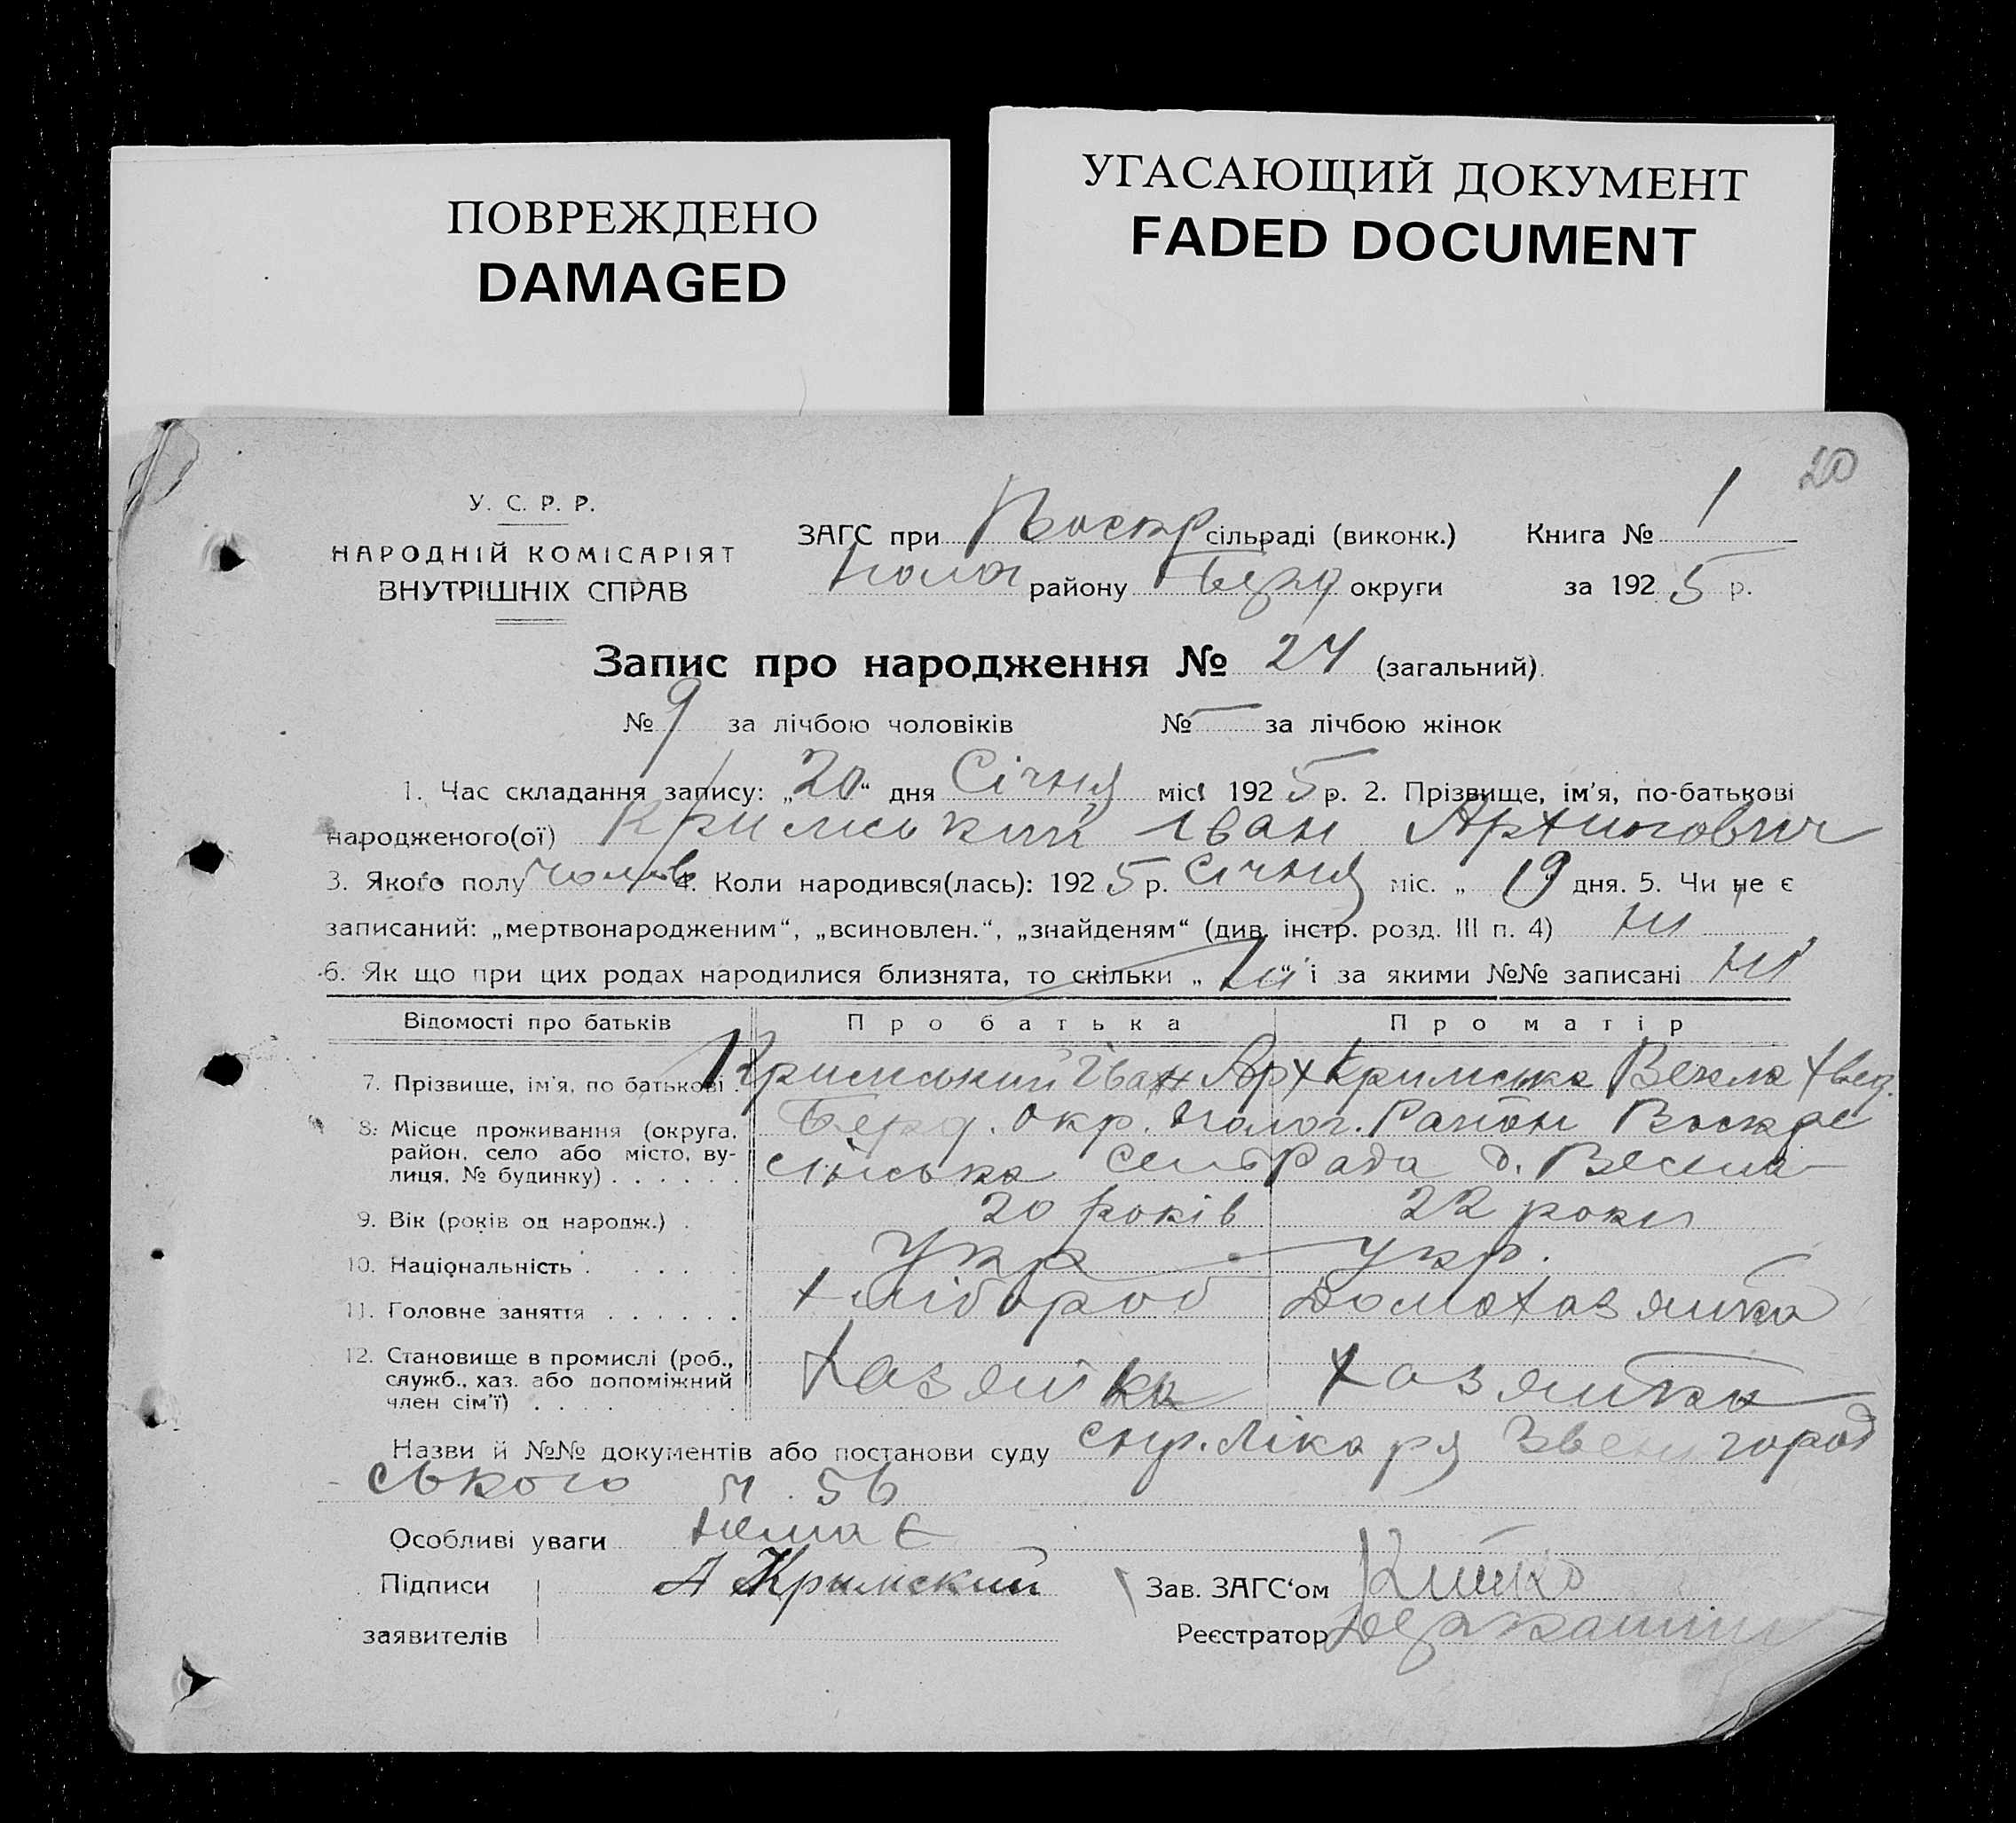 ПОВРЕЖДЕНО
DAMAGED
УГАСАЮЩИЙ ДОКУМЕНТ
FADED DOCUMENT
20
У. С. Р. Р.
НАРОДНІЙ КОМІСАРІЯТ
ВНУТРІШНІХ СПРАВ
ЗАГС при Воскр сільраді (виконк.) Книга № 1
Полог району Берд округи за 1925 р.
Запис про народження № 24 (загальний).
№ 9 за лічбою чоловіків № — за лічбою жінок
1. Час складання запису: „20“ дня Січня міс. 1925 р. 2. Прізвище, ім'я, по-батькові
народженого(ої) Кримський Іван
3. Якого полу чолов 4. Коли народився(лась): 1925 р. Січня міс. „19 дня. 5. Чи не є
записаний: „мертвонародженим“, „всиновлен.“, „знайденям“ (див. інстр. розд. III п. 4) ні
6. Як що при цих родах народилися близнята, то скільки „ні“ і за якими №№ записані ні
Відомості про батьків Про батька Про матір
7. Прізвище, ім'я, по батькові Кримський Іван Арх Кримська Векла Хвед.
8. Місце проживання (округа, район, село або місто, вулиця, № будинку) Берд. окр. Полог. Район Воскре
сінська СельРада д. Весела
9. Вік (років од народж.) 20 років 22 роки
10. Національність Укр укр.
11. Головне заняття Хлібороб Домохазяйка
12. Становище в промислі (роб., служб., хаз. або допоміжний член сім'ї) Хазяйка Хазяйка
Назви й №№ документів або постанови суду Спр. Лікаря Звенигород
ського 56
Особливі уваги немає
Підписи А Крымский Зав. ЗАГС'ом
заявителів Реєстратор